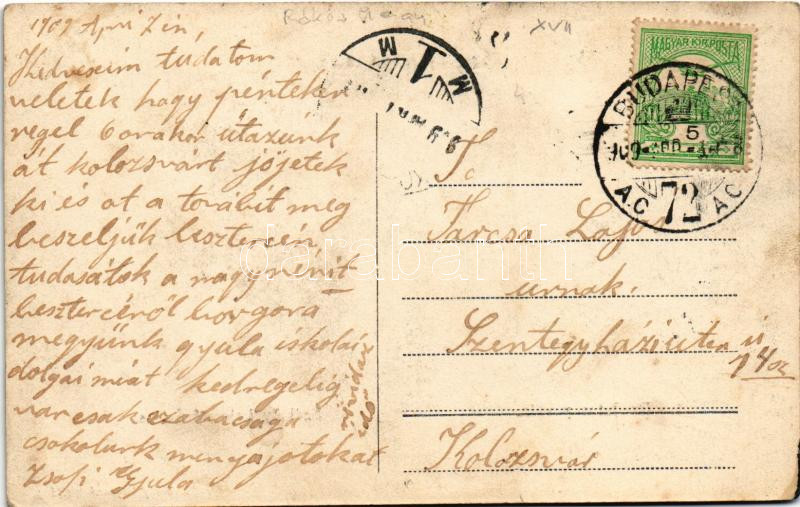 1909 April 7 én,
Kedveseim tudatom
veletek hogy pénteken
regel 6 orakor útazunk
át kolozsvárt jöjetek
ki és ot a továbit meg
beszeljük besztercén
tudasátok a nagynénit
beszterczéről borgora
megyünk gyula iskolai
dolgai miat kedregelig
van csak szabacsága
csokolunk menyajotokat
Zsofi és Gyula
rövidez
idő
Rákos
XVII
M 1 M
MAGYAR KIR. POSTA
BUDAPEST
5
909
A.C. 72 A.C.
T. C.
Tarcsa Lajos
urnak.
Szentegyházi utca
14 sz
Kolozsvár
darabanth